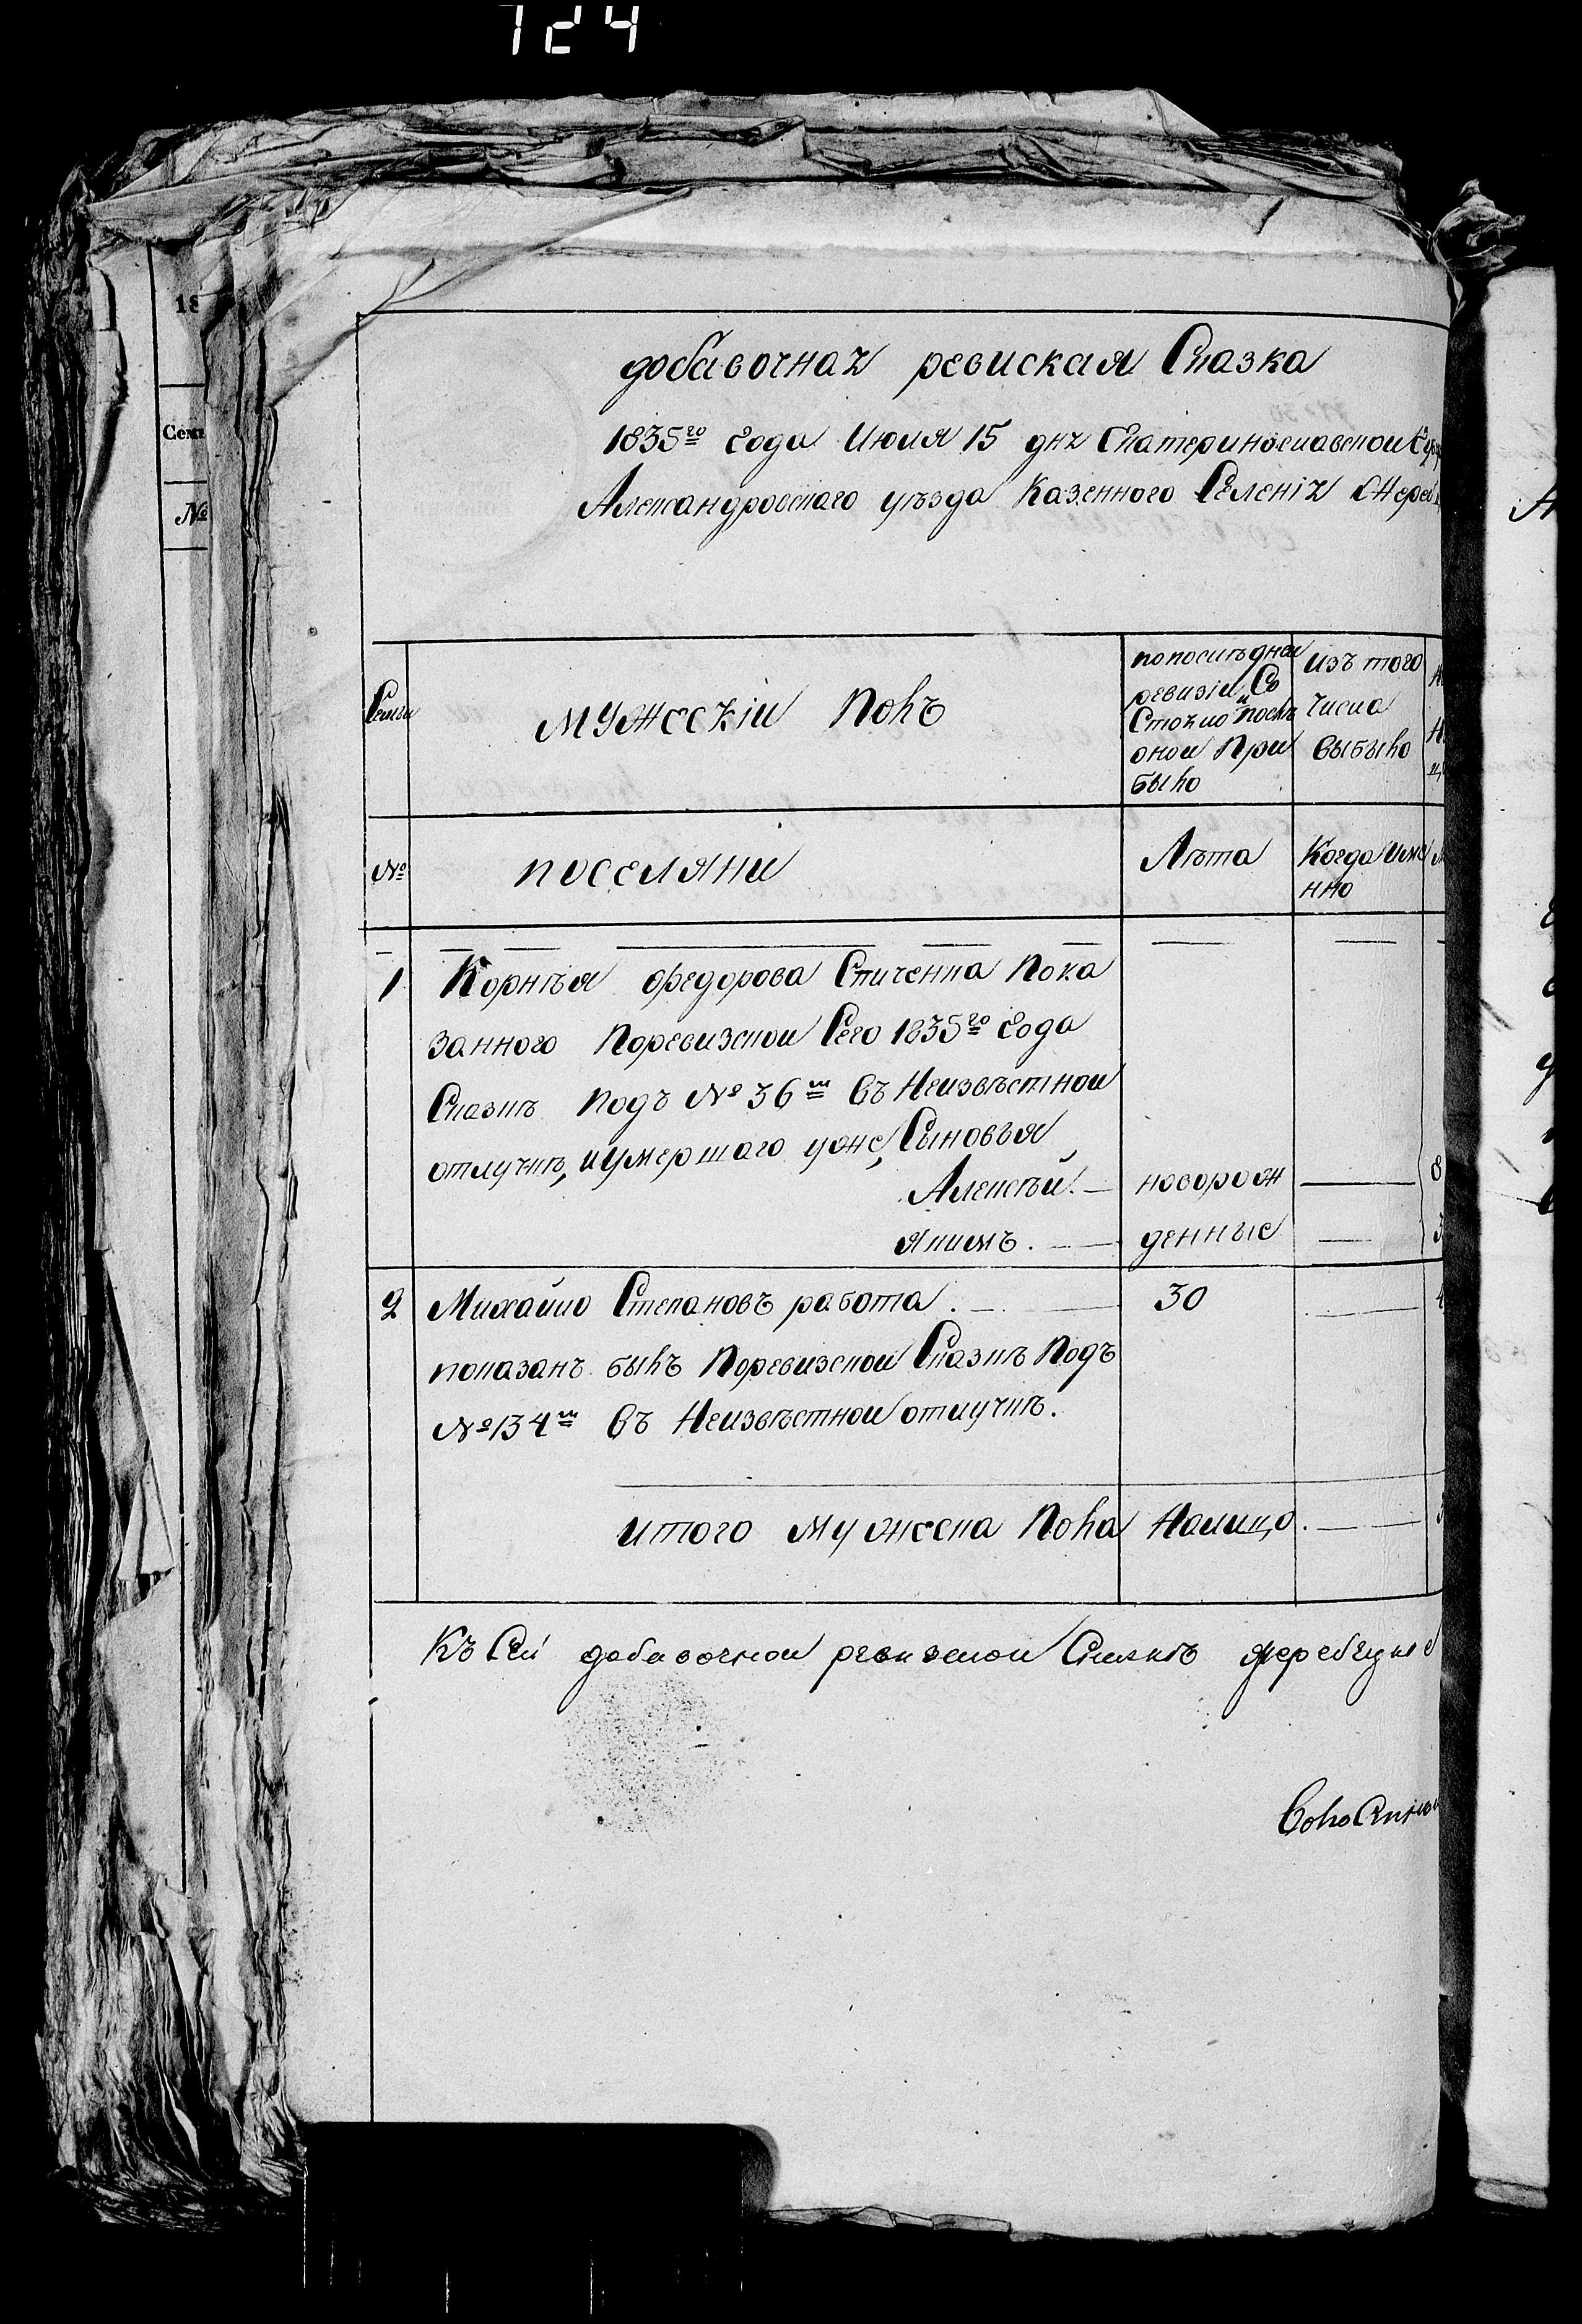 724
18
Семь
№
добавочная ревиская Сказка
1835го Года Июля 15 дня Екатеринославской
Александровскаго уъзда Казенного Селенія Жереб
Семьи
мужескій полъ
попослъдней
ревизіи Со
Стояло и послъ
оной При
было
изъ того
числа
выбыло
№
поселяни
Лъта
Когда Име
нно
1
Корнъя Федорова Спиченка Пока
занного Поревизской Сего 1835го Года
Сказкъ Подъ № 36м Въ Неизвъстной
отлучкъ, и умершаго уоне, Сыновья,
Алексъй.
новорож
8
Якимъ.
денные
3
2
Михайло Степановъ работа.
30
показанъ былъ Поревизской Сказкъ Подъ
№ 134м Въ Неизвъстной отлучкъ.
итого мужеска Пола Налицо.
Къ Сей добавочной ревизской Сказкъ